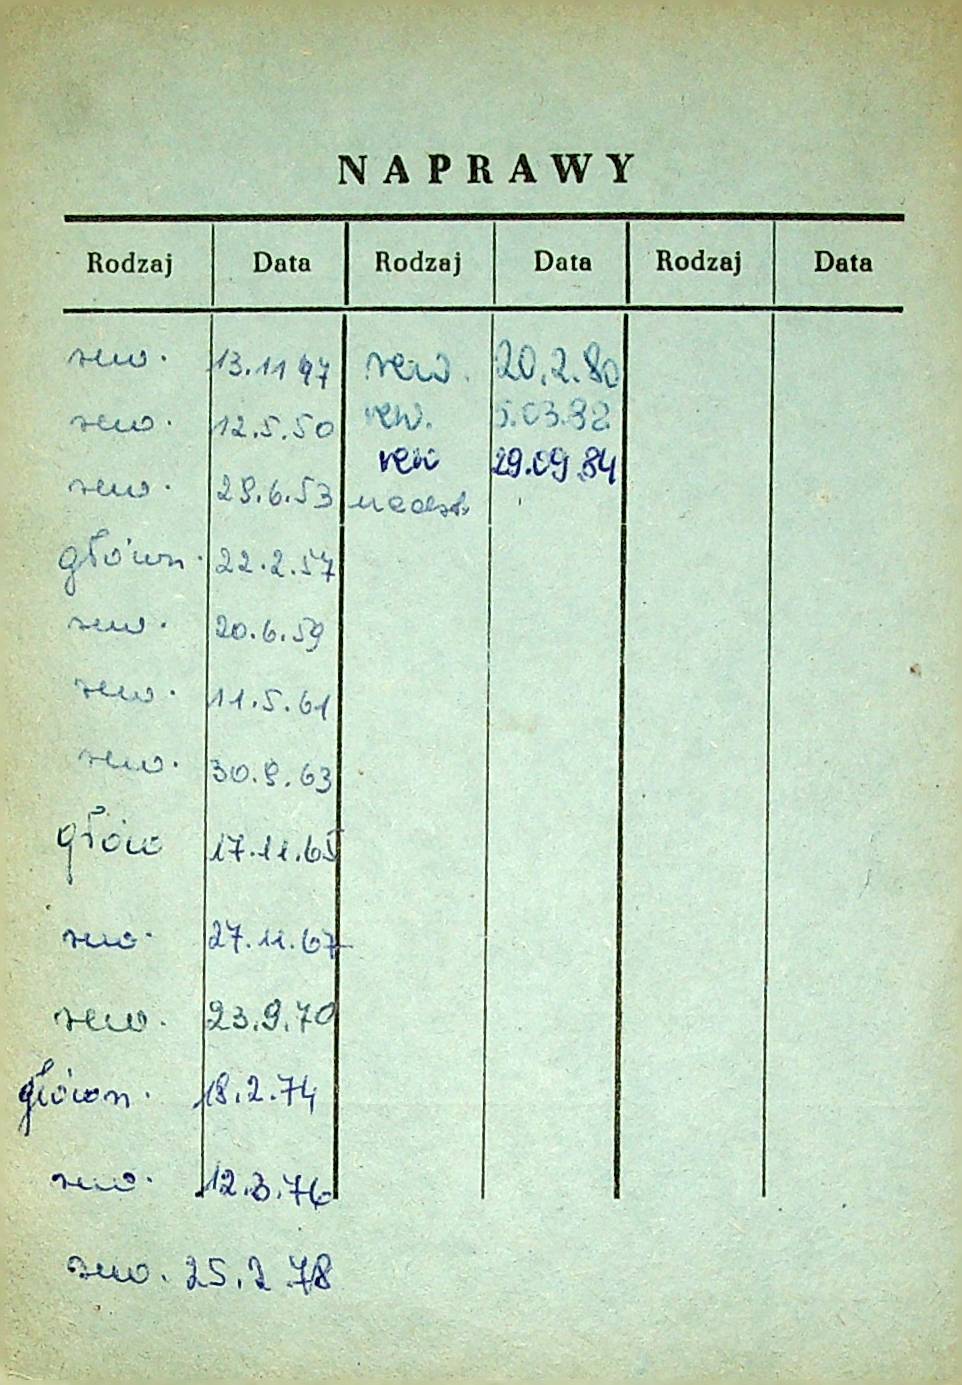 NAPRAWY
Rodzaj Data Rodzaj Data Rodzaj Data
rew. 13.11 47
rew. 12.5.50
rew. 29.6.53
główn. 22.2.57
rew. 20.6.59
rew. 11.5.61
rew. 30.9.63
głów 17.11.65
rew. 27.11.67
rew. 23.9.70
główn. 18.2.74
rew. 12.3.76
rew. 25.2 78
rew. 20.2.80
rew. 5.03.82
rew 29.09.84